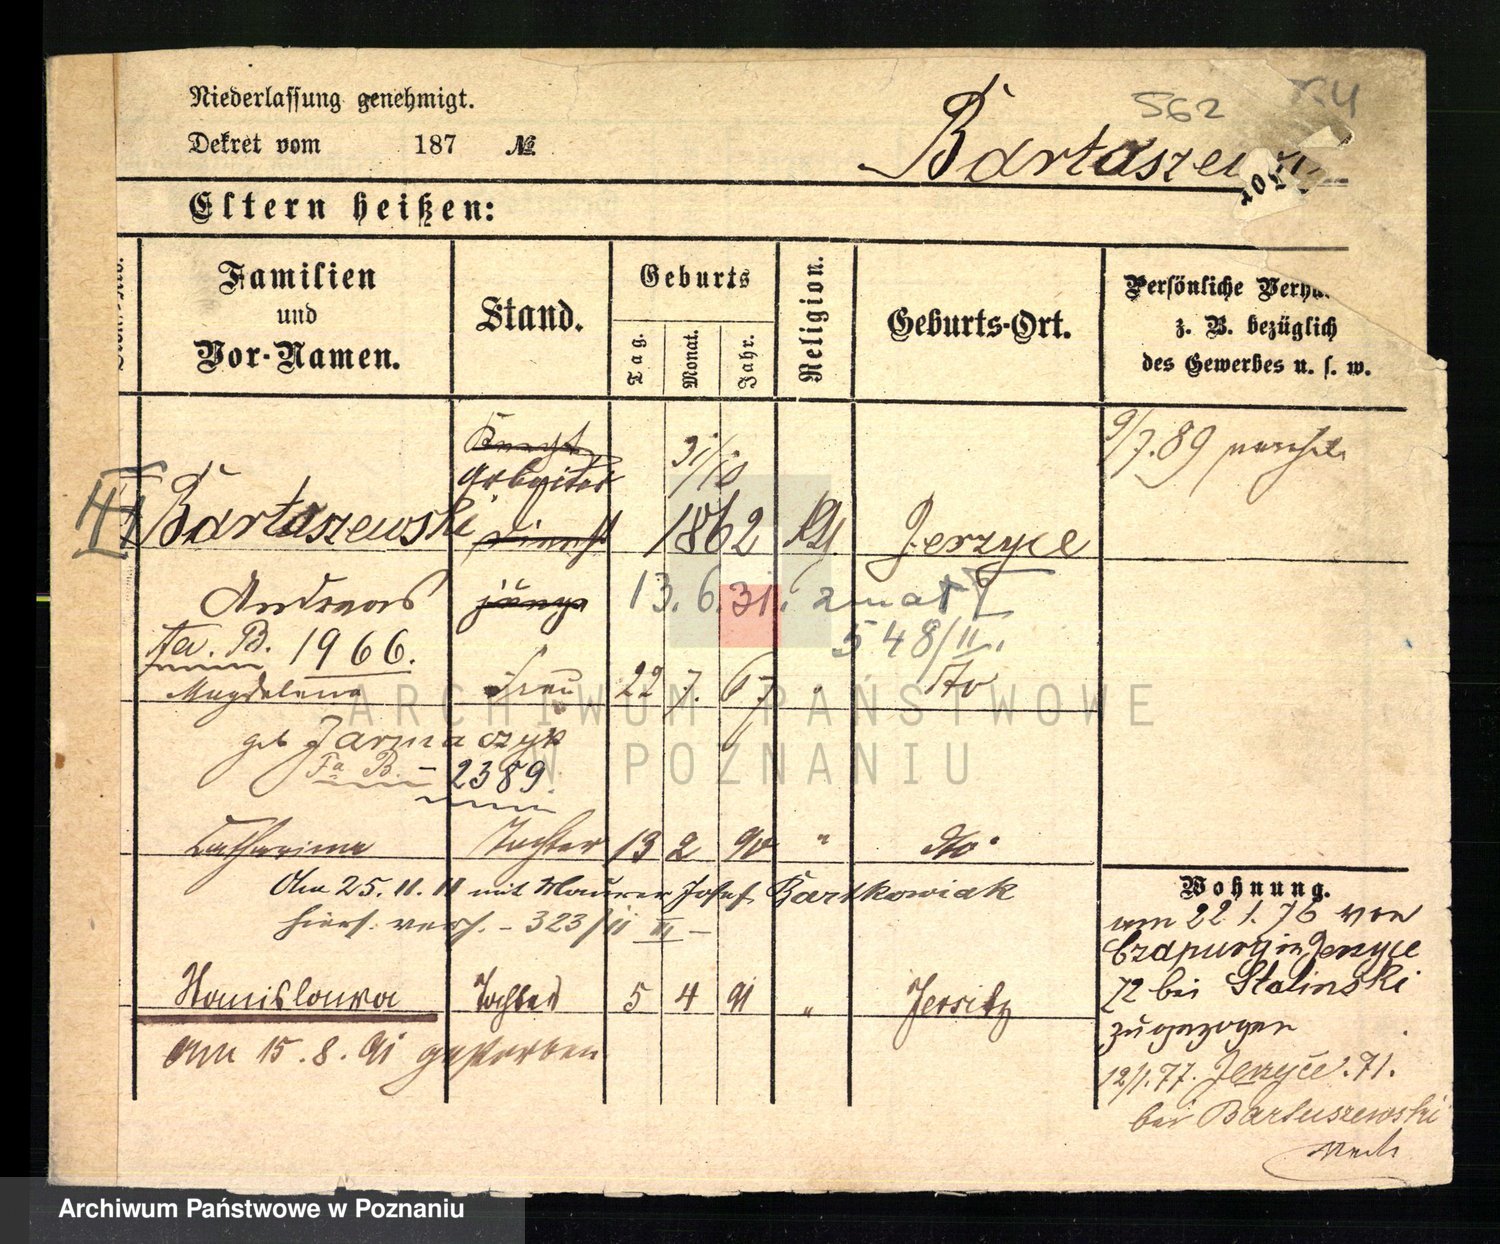 Niederlassung genehmigt.
562
Dekret vom 187 №
Bartaszew
Eltern heißen:
Familien und Vor-Namen.
Stand.
Geburts
Tag.
Monat.
Jahr.
Religion.
Geburts-Ort.
Persönliche Verhä
z. B. bezüglich
des Gewerbes u. s. w.
Knecht
31/10
9/7.89
Arbeiter
III Bartaszewski Dienst 1862 Jerzyce
Andreas junge 13. 6. 31.
548/II.
fa. B. 1966.
Magdalena Frau 22 7. 67 " dto
geb Jarmaczyk
Fa B. - 2389.
Catharina Tochter 13 2 90 " dto
Am 25. 11. 11 mit Maurer Josef Bartkowiak
hiers. verh. - 323/11 III -
Stanislawa Tochter 5 4 91 " Jersitz
Am 15. 8. 91 gestorben
Wohnung.
am 22.1.76 von
Czapury in Jerzyce
72 bei Stalinski
zugezogen
12/1.77. Jerzyce. 71.
bei Bartuszewski
ARCHIWUM PAŃSTWOWE
W POZNANIU
Archiwum Państwowe w Poznaniu